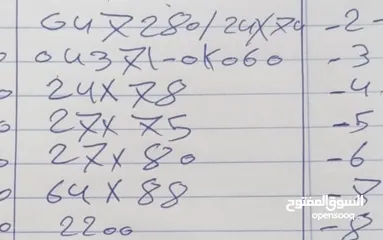 647280/24X74 -2-
04371-0K060 -3
24X78 -4
27X75 -5
27X80 -6
64X88 -7
2200 -8
السوق المفتوح
opensooq